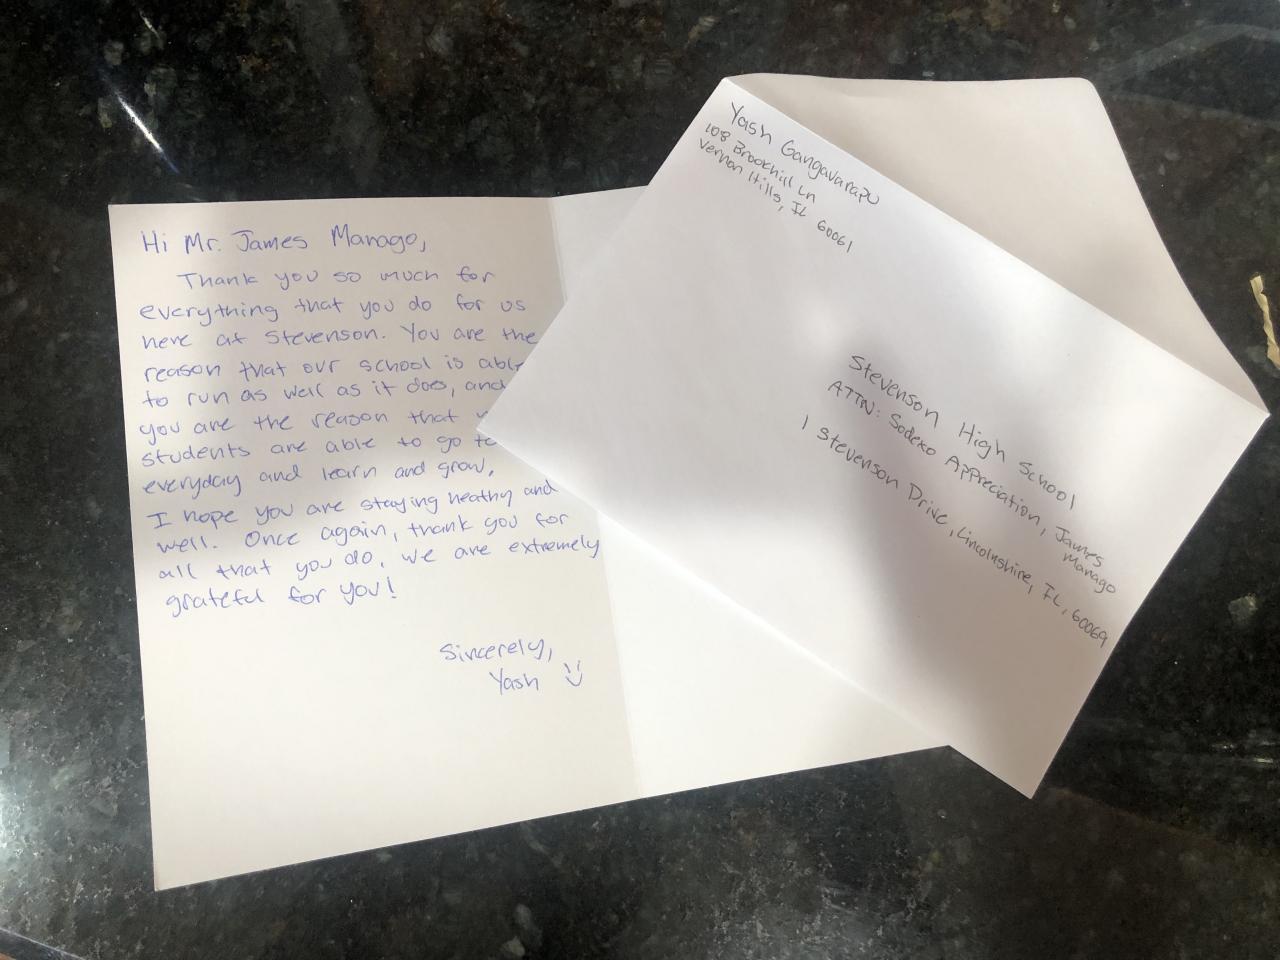 Hi Mr. James Manago,
Thank you so much for
everything that you do for us
here at Stevenson. You are the
reason that our school is able
to run as well as it does, and
you are the reason that
students are able to go to
everyday and learn and grow.
I hope you are staying heathy and
well. Once again, thank you for
all that you do. We are extremely
grateful for you!
Sincerely,
Yash :)
Yash Gangavarapu
108 Brookhill Ln
Vernon Hills, IL 60061
Stevenson High School
ATTN: Sodexo Appreciation, James
Manago
1 Stevenson Drive, Lincolnshire, IL, 60069